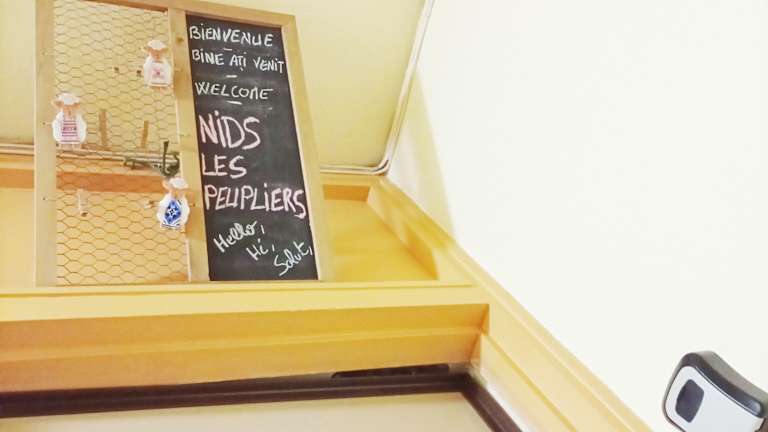 BIENVENUE
BINE AȚI VENIT
WELCOME
NIDS
LES
PEUPLIERS
Hello,
Hi,
Salut,